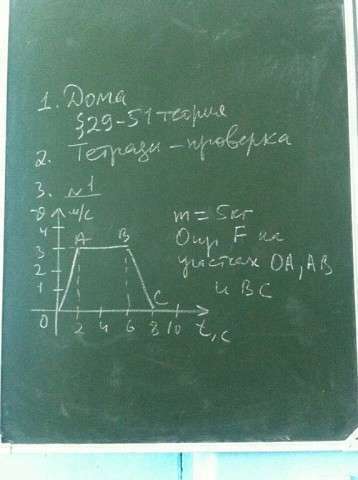 1. Дома
§29-51 теория
2. Тетради - проверка
3. №1
υ м/с
4
3
2
1
0
A
B
C
2 4 6 8 10 t, c
m = 5кг
Опр F на
участках OA, AB
и BC